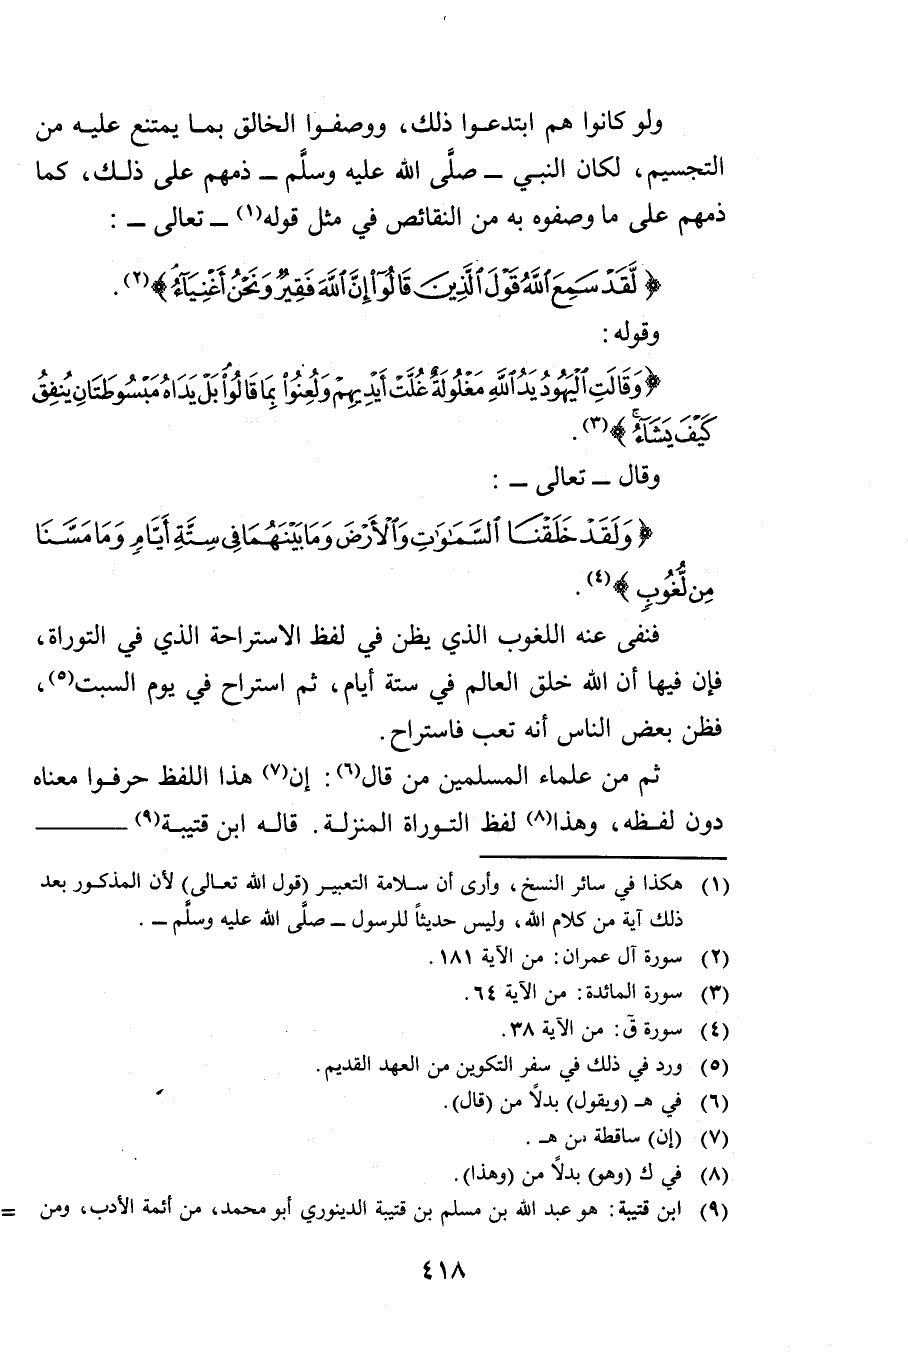 ولو كانوا هم ابتدعوا ذلك، ووصفوا الخالق بما يمتنع عليه من
التجسيم، لكان النبي ــ صلَّى الله عليه وسلَّم ــ ذمهم على ذلك، كما
ذمهم على ما وصفوه به من النقائص في مثل قوله(١) ــ تعالى ــ :
﴿ لَّقَدْ سَمِعَ ٱللَّهُ قَوْلَ ٱلَّذِينَ قَالُوٓا۟ إِنَّ ٱللَّهَ فَقِيرٌ وَنَحْنُ أَغْنِيَآءُ ﴾(٢).
وقوله:
﴿ وَقَالَتِ ٱلْيَهُودُ يَدُ ٱللَّهِ مَغْلُولَةٌ غُلَّتْ أَيْدِيهِمْ وَلُعِنُوا۟ بِمَا قَالُوا۟ بَلْ يَدَاهُ مَبْسُوطَتَانِ يُنفِقُ
كَيْفَ يَشَآءُ ﴾(٣).
وقال ــ تعالى ــ :
﴿ وَلَقَدْ خَلَقْنَا ٱلسَّمَٰوَٰتِ وَٱلْأَرْضَ وَمَا بَيْنَهُمَا فِى سِتَّةِ أَيَّامٍ وَمَا مَسَّنَا
مِن لُّغُوبٍ ﴾(٤).
فنفى عنه اللغوب الذي يظن في لفظ الاستراحة الذي في التوراة،
فإن فيها أن الله خلق العالم في ستة أيام، ثم استراح في يوم السبت(٥)،
فظن بعض الناس أنه تعب فاستراح.
ثم من علماء المسلمين من قال(٦): إن(٧) هذا اللفظ حرفوا معناه
دون لفظه، وهذا(٨) لفظ التوراة المنزلة. قاله ابن قتيبة(٩)
(١) هكذا في سائر النسخ، وأرى أن سلامة التعبير (قول الله تعالى) لأن المذكور بعد
ذلك آية من كلام الله، وليس حديثاً للرسول ــ صلَّى الله عليه وسلَّم ــ .
(٢) سورة آل عمران: من الآية ١٨١.
(٣) سورة المائدة: من الآية ٦٤.
(٤) سورة قۤ: من الآية ٣٨.
(٥) ورد في ذلك في سفر التكوين من العهد القديم.
(٦) في هـ (ويقول) بدلاً من (قال).
(٧) (إن) ساقطة من هـ .
(٨) في ك (وهو) بدلاً من (وهذا).
(٩) ابن قتيبة: هو عبد الله بن مسلم بن قتيبة الدينوري أبو محمد، من أئمة الأدب، ومن =
٤١٨